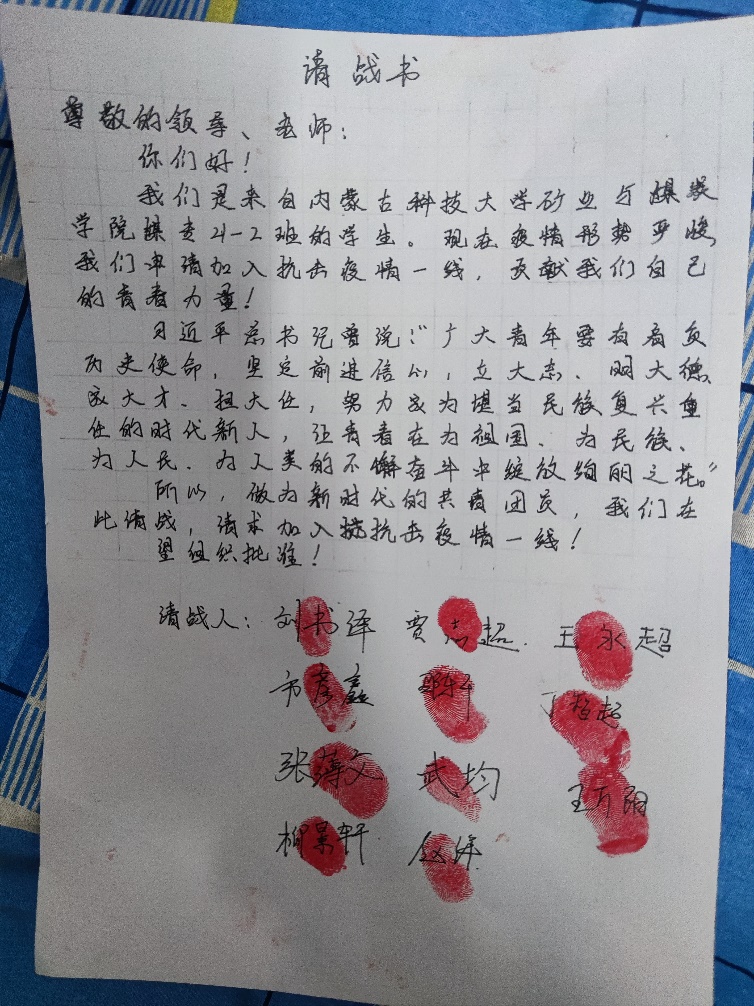 请战书
尊敬的领导、老师：
你们好！
我们是来自内蒙古科技大学矿业与煤炭
学院煤专21-2班的学生。现在疫情形势严峻,
我们申请加入抗击疫情一线，贡献我们自己
的青春力量！
习近平总书记曾说：“广大青年要肩负
历史使命，坚定前进信心，立大志、明大德、
成大才、担大任，努力成为堪当民族复兴重
任的时代新人，让青春在为祖国、为民族、
为人民、为人类的不懈奋斗中绽放绚丽之花。”
所以，做为新时代的共青团员，我们在
此请战，请求加入抗击疫情一线！
望组织批准！
请战人：刘书泽 贾志超 王永超
方彦鑫 丁植超
张薄文 武均 王万阳
柳景轩 赵绛